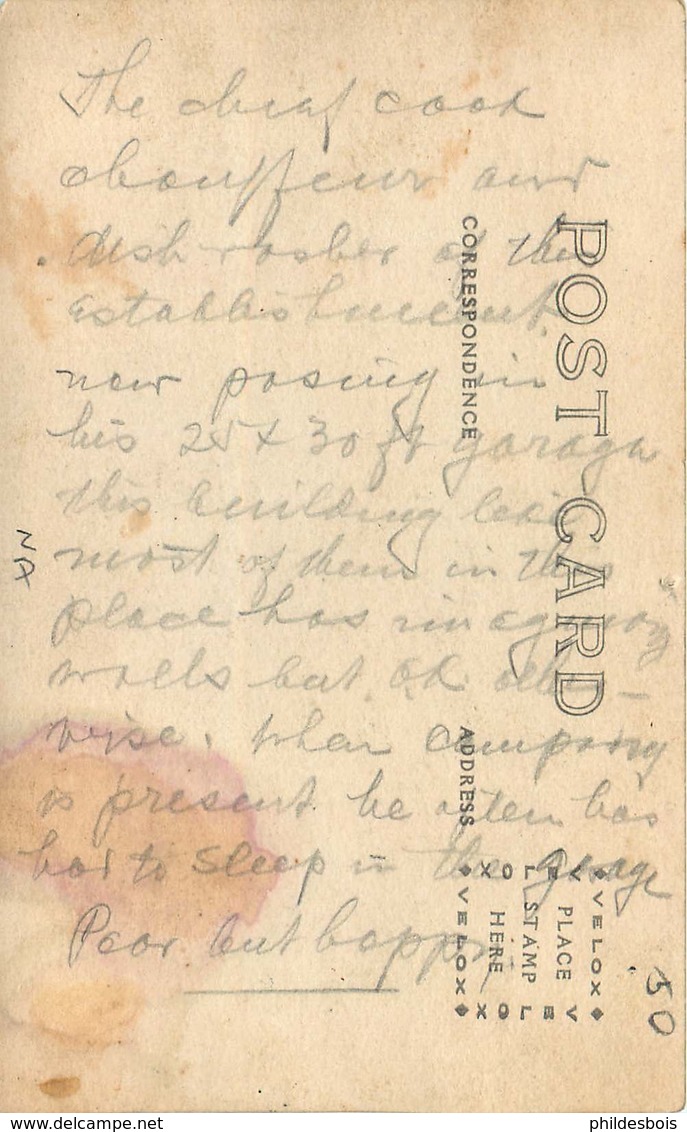 The chief cook
chauffeur and
dish-washer of this
establishment.
now posing in
his 25 x 30 ft garage
this building like
most of them in this
place has imaginary
walls but OK other-
wise. When company
is present he often has
had to sleep in the garage
Poor but happy
POST CARD
CORRESPONDENCE
ADDRESS
VELOX
VELOX
VELOX
VELOX
PLACE
STAMP
HERE
NA
50
delcampe.net
phildesbois